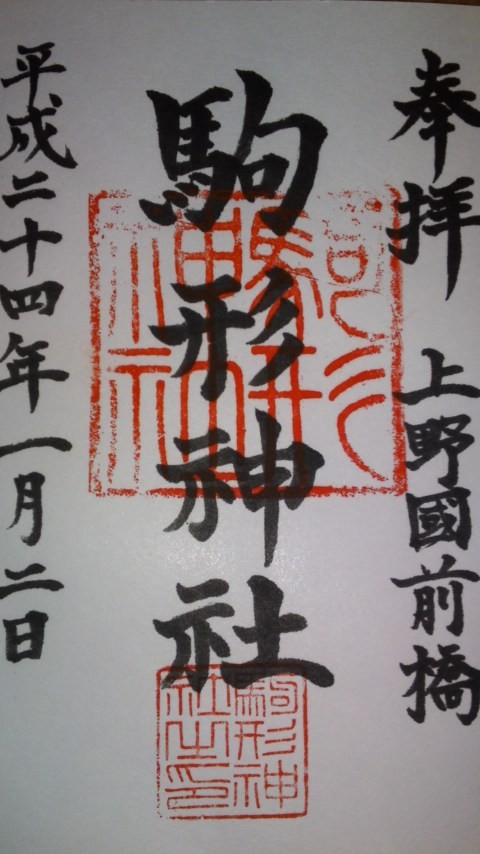 奉拝 上野國前橋
駒形神社
駒形神社
駒形神社之印
平成二十四年一月二日